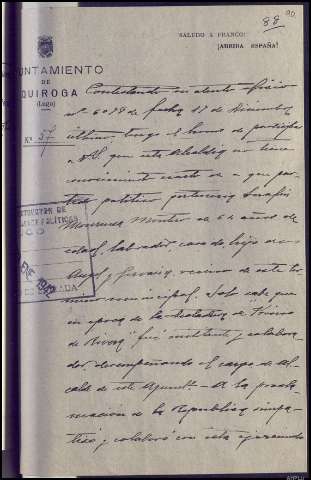 88
SALUDO A FRANCO:
¡ARRIBA ESPAÑA!
AYUNTAMIENTO
DE
QUIROGA
(Lugo)
Nº 57
Contestando su atento oficio
nº 6078 de fecha 17 de Diciembre
último, tengo el honor de participar
a V.S. que esta Alcaldía no tiene
conocimiento exacto de a que par-
tido político perteneció Serafín
de 64 años de
edad, labrador, casado, hijo de
Angel y vecino de este tér-
mino municipal. Solo sabe que
en época de la Dictadura de "Primo
de Rivera" fué militante y colabora-
dor desempeñando el cargo de Al-
calde de este Ayuntº. A la procla-
mación de la República simpa-
tizó y colaboró con esta ejerciendo